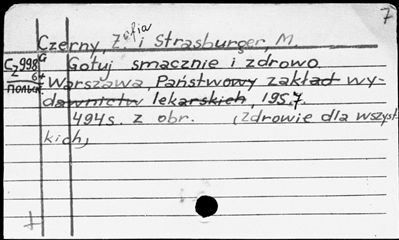 7
Czerny, Zofia i Strasburger, M.
Cz998G
6+
Польск
Gotuj smacznie i zdrowo.
Warszawa, Państwowy zakład wy-
dawnictw lekarskich, 1957.
494s. z obr. (Zdrowie dla wszyst-
kich)